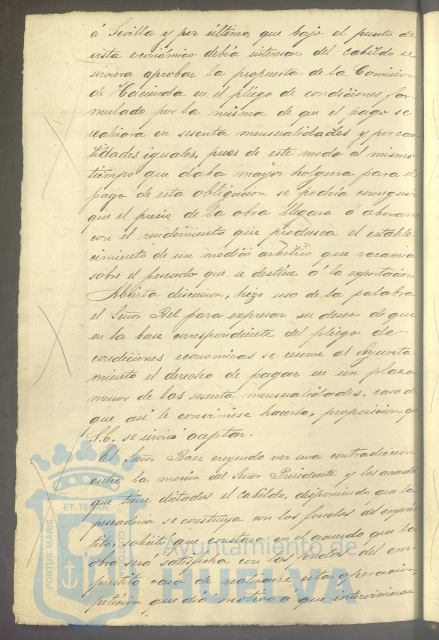 á Sevilla y por último, que bajo el punto de
vista económico debía interesar del cabildo se
sirviera aprobar la propuesta de la Comisión
de Hacienda en el pliego de condiciones for
mulado por la misma de que el pago se
realizara en sesenta mensualidades y por can
tidades iguales, pues de este modo al mismo
tiempo que daba mayor holgura para el
pago de esta obligación se podría conseguir
que el precio de la obra llegara á abonarse
con el rendimiento que produzca el estable
cimiento de un módico arbitrio que recaería
sobre el pescado que se destine á la exportación
Abierta discusión, hizo uso de la palabra
el Señor Bel para expresar su deseo de que
en la base correspondiente del pliego de
condiciones económicas se reserve al Ayunta
miento el derecho de pagar en un plazo
menor de las sesenta mensualidades, caso de
que así le conviniese hacerlo, proposición que
S.E. se sirvió aceptar.
El Señor Baez creyendo ver una contradicción
entre la moción del Señor Presidente y los acuerdos
que tiene dictados el cabildo, disponiendo que la
pescadería se construya con los fondos del emprés
tito, solicitó que constara en el acuerdo que la
obra será satisfecha con los fondos del em
prestito caso de realizarse esta operación,
petición que dió motivo a que intervinieran
PORTUS MARIS
ET TERRAE
CUSTODIA
Ayuntamiento de
HUELVA